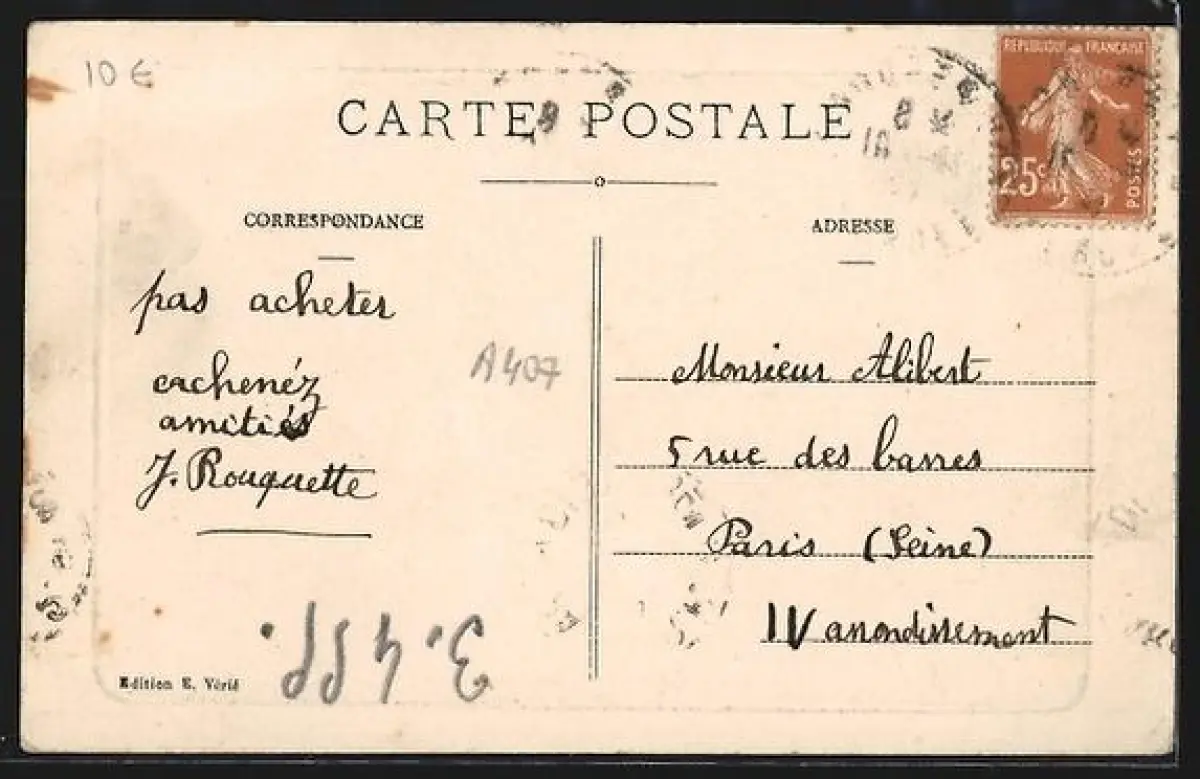 10 €
CARTE POSTALE
REPUBLIQUE FRANÇAISE
25c
POSTES
CORRESPONDANCE
ADRESSE
pas acheter
cachenéz
amitiés
J. Rouquette
A407
Monsieur Alibert
5 rue des barres
Paris (Seine)
IV arrondissement
Edition E. Vérié